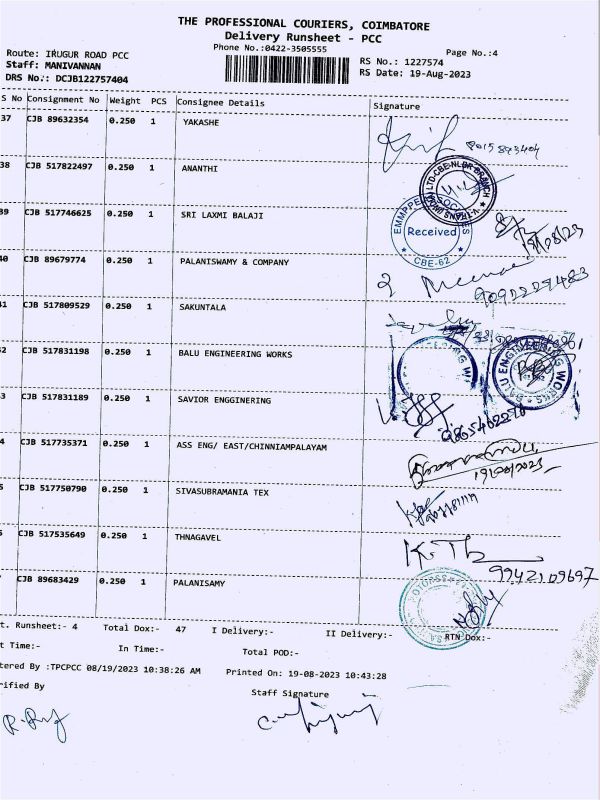 THE PROFESSIONAL COURIERS, COIMBATORE
Delivery Runsheet - PCC
Phone No.:0422-3505555
Page No.:4
Route: IRUGUR ROAD PCC
RS No.: 1227574
Staff: MANIVANNAN
RS Date: 19-Aug-2023
DRS No.: DCJB122757404
S No Consignment No Weight PCS Consignee Details Signature
37 CJB 89632354 0.250 1 YAKASHE
38 CJB 517822497 0.250 1 ANANTHI
39 CJB 517746625 0.250 1 SRI LAXMI BALAJI
Received
CBE-62
40 CJB 89679774 0.250 1 PALANISWAMY & COMPANY
9090229483
41 CJB 517809529 0.250 1 SAKUNTALA
42 CJB 517831198 0.250 1 BALU ENGINEERING WORKS
BALU ENGINEERING WORKS
3 CJB 517831189 0.250 1 SAVIOR ENGGINERING
4 CJB 517735371 0.250 1 ASS ENG/ EAST/CHINNIAMPALAYAM
5 CJB 517750790 0.250 1 SIVASUBRAMANIA TEX
CJB 517535649 0.250 1 THNAGAVEL
K.Th
9942109697
CJB 89683429 0.250 1 PALANISAMY
t. Runsheet:- 4 Total Dox:- 47 I Delivery:- II Delivery:- RTN Dox:-
t Time:- In Time:- Total POD:-
tered By :TPCPCC 08/19/2023 10:38:26 AM Printed On: 19-08-2023 10:43:28
rified By
Staff Signature